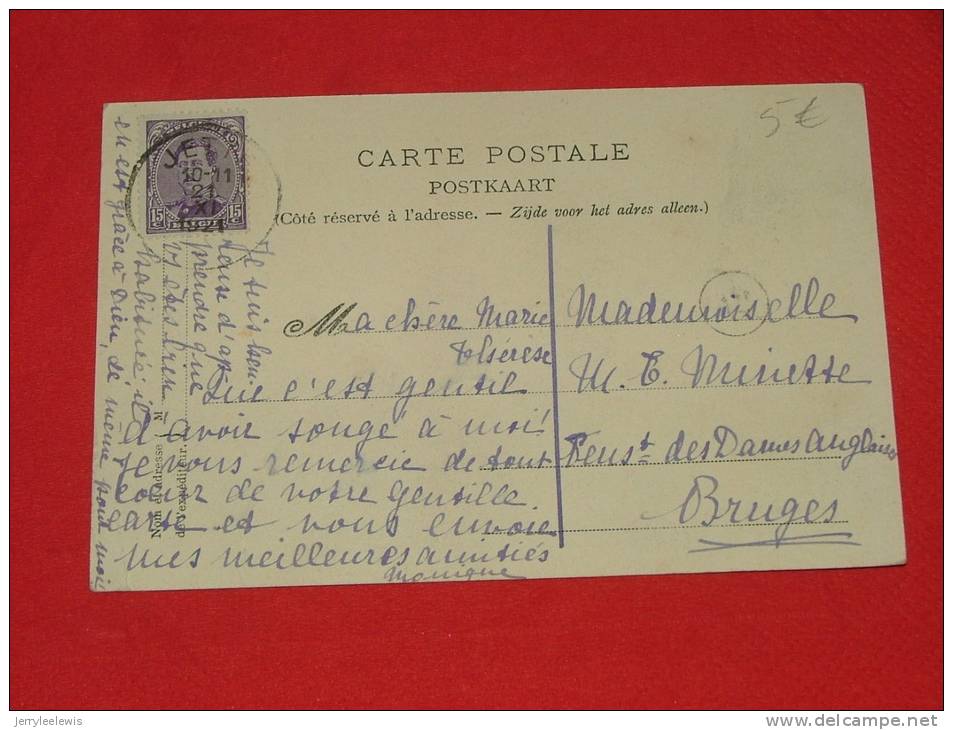 5€
CARTE POSTALE
POSTKAART
(Côté réservé à l'adresse. — Zijde voor het adres alleen.)
BELGIQUE
15c 15c
BELGIË
JET
10-11
21
XI
Ma chère Marie
Thérèse
Que c'est gentil
d'avoir songé à moi!
Je vous remercie de tout
coeur de votre gentille
carte et vous envoie
mes meilleures amitiés
Monique
Je suis heu-
reuse d'ap-
prendre que
vs êtes bien
habituée, il
en est grâce à Dieu, de même pour moi!
Nom et adresse M
de l'expéditeur.
Mademoiselle
M. T. Minette
Pens.t des Dames Anglaises
Bruges
jerryleelewis
www.delcampe.net